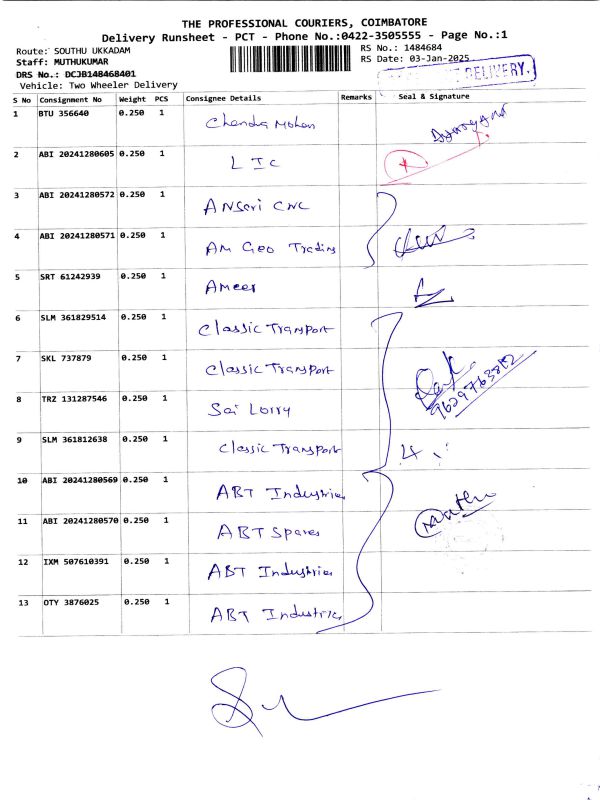 THE PROFESSIONAL COURIERS, COIMBATORE
Delivery Runsheet - PCT - Phone No.:0422-3505555 - Page No.:1
Route: SOUTHU UKKADAM
RS No.: 1484684
Staff: MUTHUKUMAR
RS Date: 03-Jan-2025
DRS No.: DCJB148468401
DELIVERY.
Vehicle: Two Wheeler Delivery
S No Consignment No Weight PCS Consignee Details Remarks Seal & Signature
1 BTU 356640 0.250 1 Chandra Mohan
2 ABI 20241280605 0.250 1 LIC
3 ABI 20241280572 0.250 1 ANSari CNC
4 ABI 20241280571 0.250 1 AM Geo Trading
5 SRT 61242939 0.250 1 Ameer
6 SLM 361829514 0.250 1 Classic Transport
7 SKL 737879 0.250 1 Classic Transport
8 TRZ 131287546 0.250 1 Sai Lorry
9629763812
9 SLM 361812638 0.250 1 Classic Transport 4
10 ABI 20241280569 0.250 1 ABT Industries
11 ABI 20241280570 0.250 1 ABT Spares
12 IXM 507610391 0.250 1 ABT Industries
13 OTY 3876025 0.250 1 ABT Industries